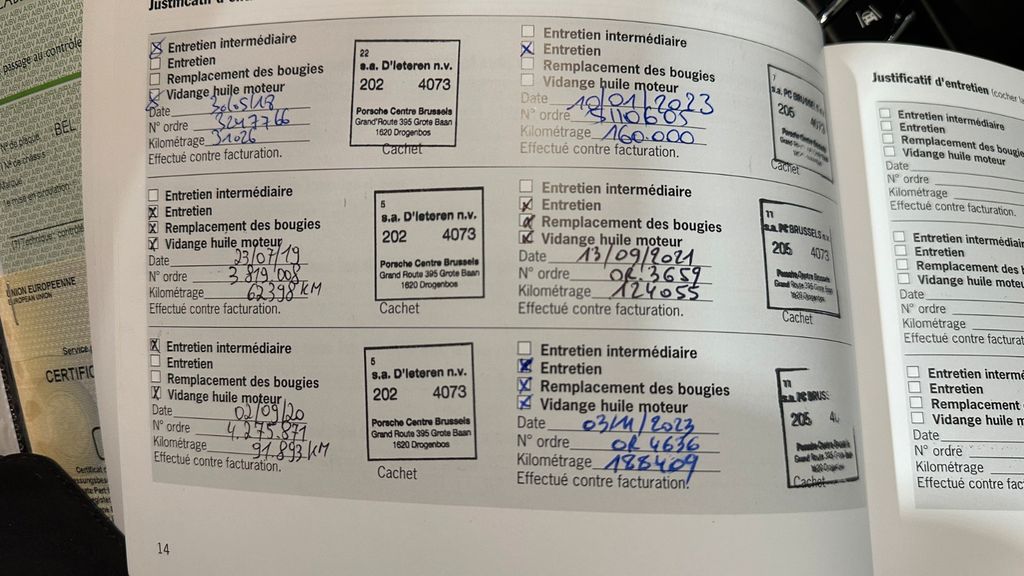 Justificatif d'entre
Entretien intermédiaire
Entretien
Remplacement des bougies
Vidange huile moteur
Date 30/05/18
N° ordre 3243766
Kilométrage 31026
Effectué contre facturation.
22
s.a. D'Ieteren n.v.
202 4073
Porsche Centre Brussels
Grand'Route 395 Grote Baan
1620 Drogenbos
Cachet
Entretien intermédiaire
Entretien
Remplacement des bougies
Vidange huile moteur
Date 23/07/19
N° ordre 3.819.008
Kilométrage 62398 KM
Effectué contre facturation.
5
s.a. D'Ieteren n.v.
202 4073
Porsche Centre Brussels
Grand Route 395 Grote Baan
1620 Drogenbos
Cachet
Entretien intermédiaire
Entretien
Remplacement des bougies
Vidange huile moteur
Date 02/09/20
N° ordre 4.275.871
Kilométrage 91.893 KM
Effectué contre facturation.
5
s.a. D'Ieteren n.v.
202 4073
Porsche Centre Brussels
Grand Route 395 Grote Baan
1620 Drogenbos
Cachet
14
Entretien intermédiaire
Entretien
Remplacement des bougies
Vidange huile moteur
Date 10/01/2023
N° ordre
Kilométrage 160.000
Effectué contre facturation.
7
s.a. PC BRUSSELS
205 4073
Cachet
Entretien intermédiaire
Entretien
Remplacement des bougies
Vidange huile moteur
Date 13/09/2021
N° ordre OR 3659
Kilométrage 124055
Effectué contre facturation.
11
s.a. PC BRUSSELS n.v.
205 4073
Porsche Centre Brussels
1620 Drogenbos
Cachet
Entretien intermédiaire
Entretien
Remplacement des bougies
Vidange huile moteur
Date 03/11/2023
N° ordre OR 4636
Kilométrage 188409
Effectué contre facturation.
11
s.a. PC BRUSS
205
Porsche Centre
Cachet
Justificatif d'entretien (cocher
Entretien intermédiaire
Entretien
Remplacement des bougie
Vidange huile moteur
Date
N° ordre
Kilométrage
Effectué contre facturation.
Entretien intermédiair
Entretien
Remplacement des b
Vidange huile moteu
Date
N° ordre
Kilométrage
Effectué contre facturat
Entretien interm
Entretien
Remplacement
Vidange huile m
Date
N° ordre
Kilométrage
Effectué contre fac
passage au contrôle
BEL
UNION EUROPEENNE
EUROPEAN UNION
Service
CERTIFIC